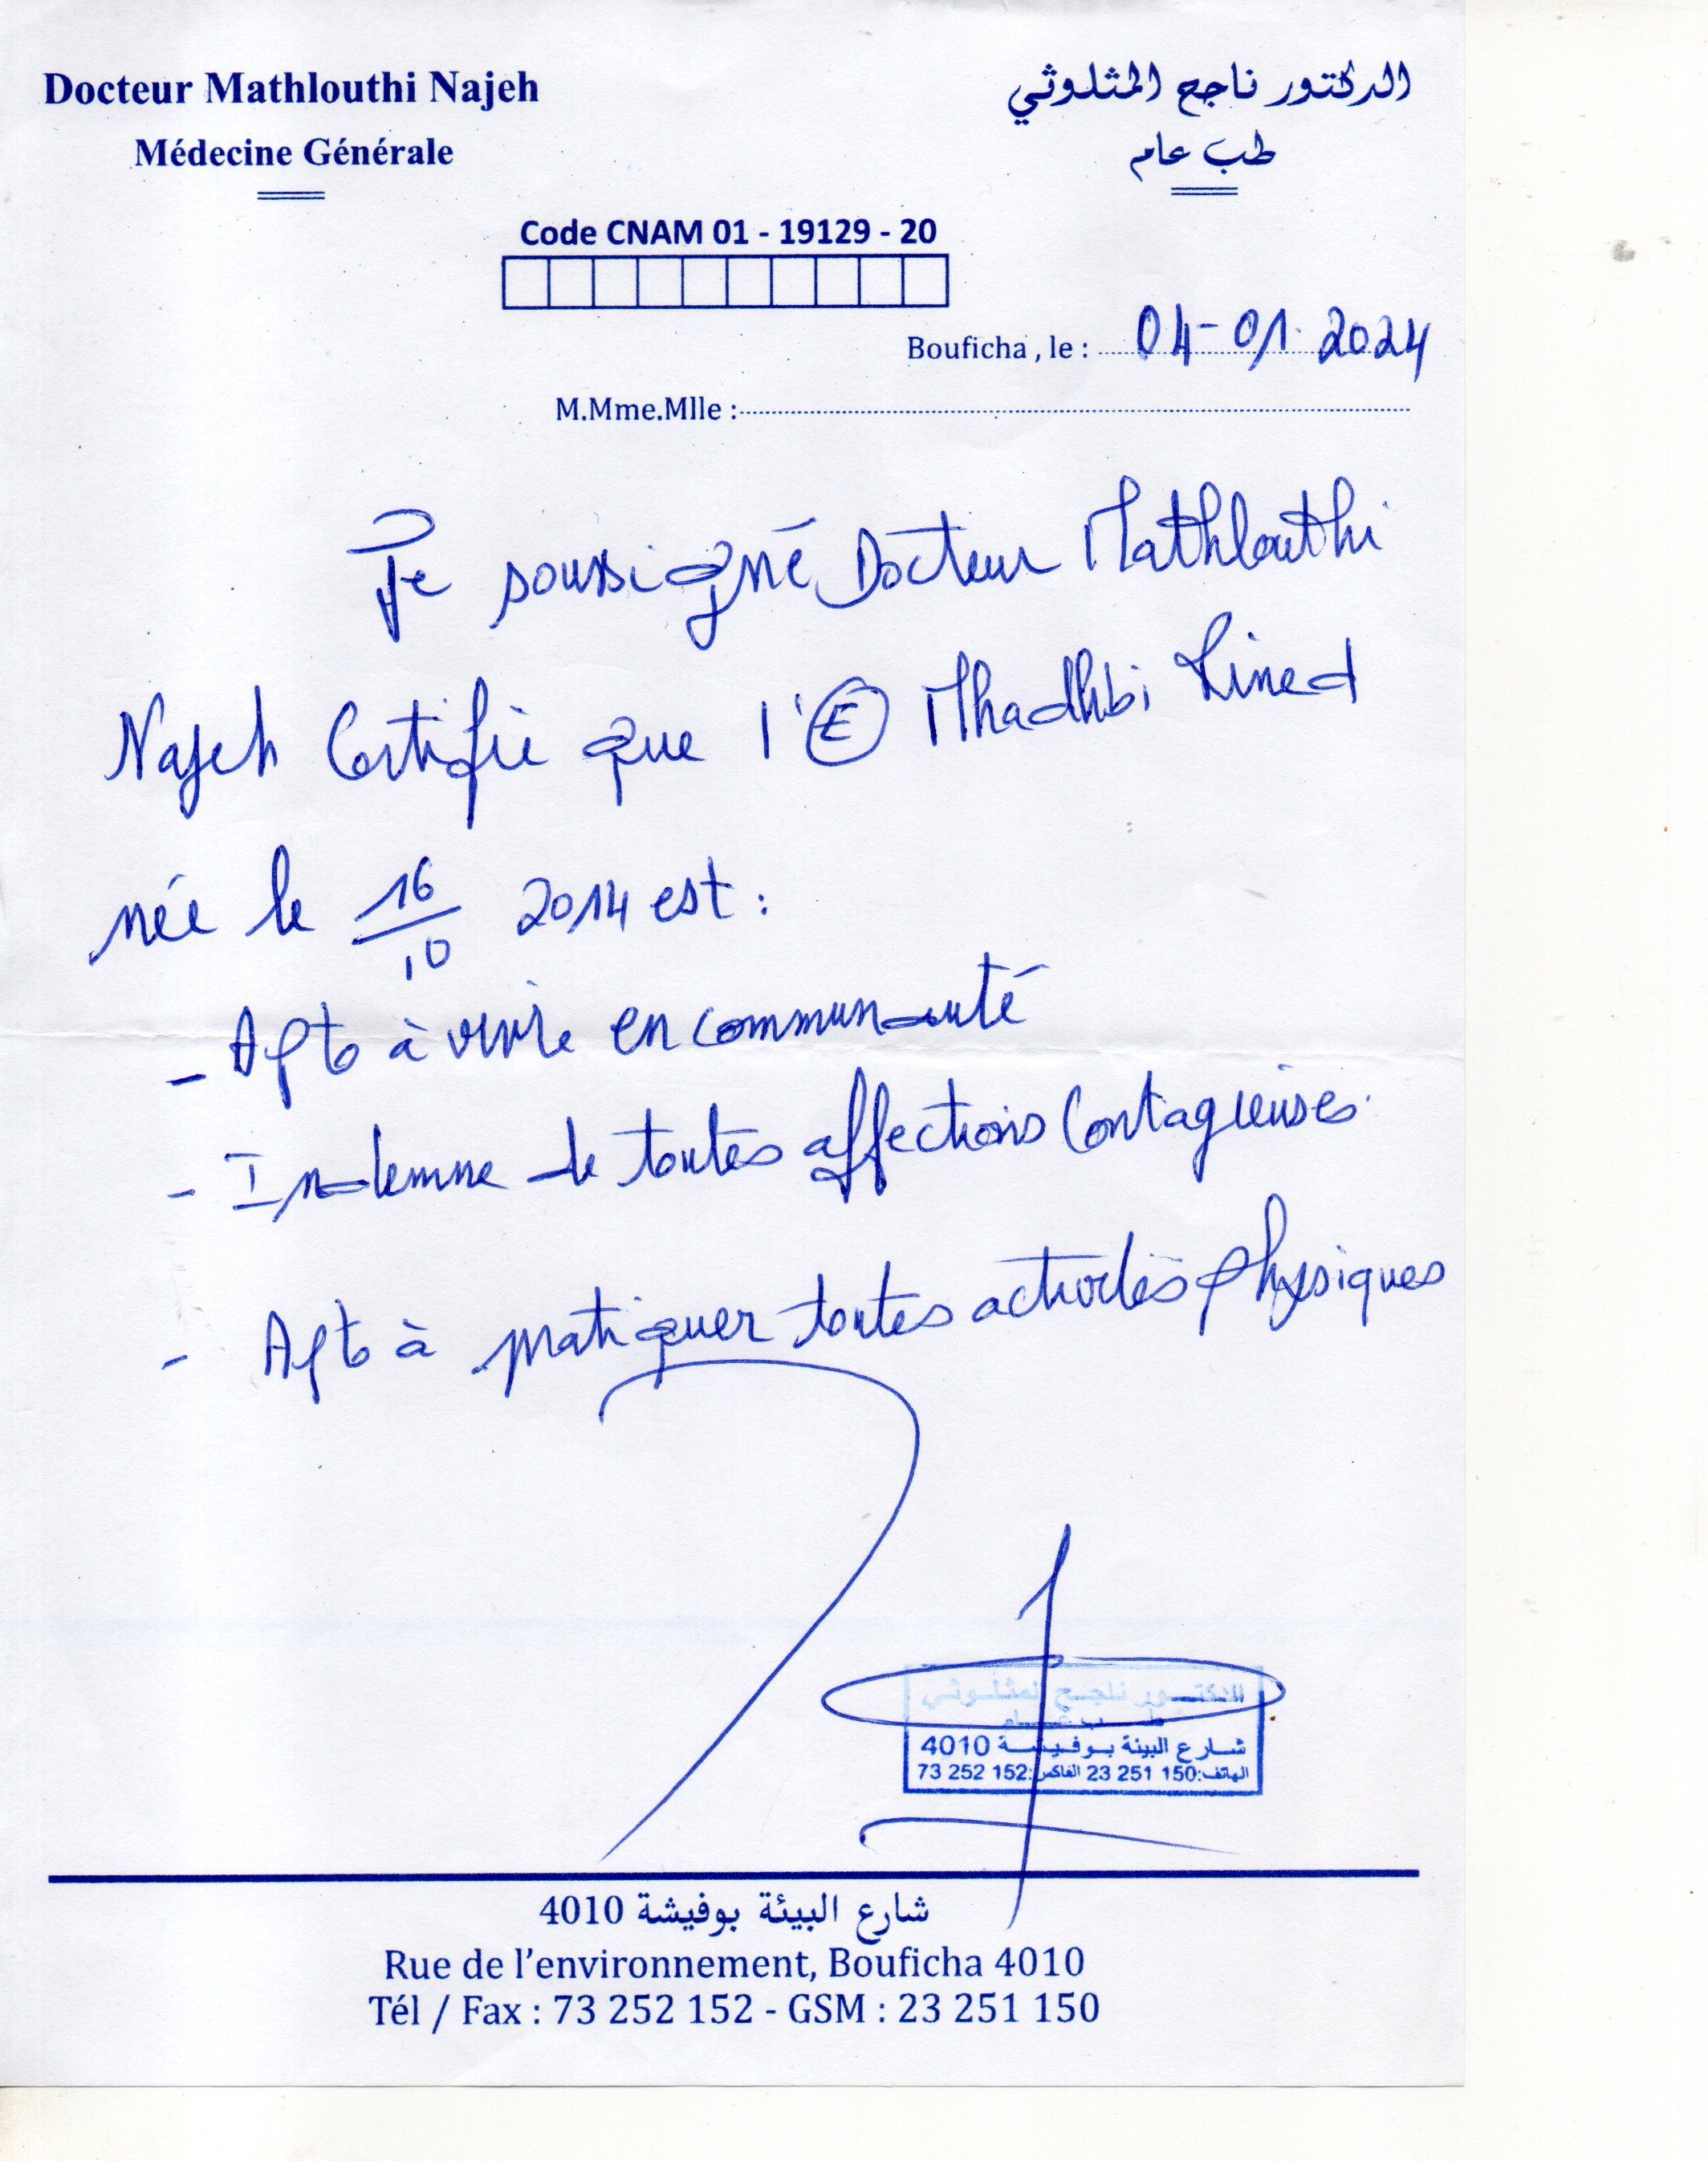 Docteur Mathlouthi Najeh
الدكتور ناجح المثلوثي
Médecine Générale
طب عام
Code CNAM 01 - 19129 - 20
Bouficha , le : 04-01-2024
M.Mme.Mlle :
Je soussigné Docteur Mathlouthi
Najeh Certifie que l'E Mhadhbi Lined
née le 16/10 2014 est :
- Apte à vivre en communauté
- Indemne de toutes affections Contagieuses.
- Apte à pratiquer toutes activités physiques
الدكتور ناجح المثلوثي
طب عام
شارع البيئة بوفيشة 4010
الهاتف:150 251 23 الفاكس:152 252 73
شارع البيئة بوفيشة 4010
Rue de l'environnement, Bouficha 4010
Tél / Fax : 73 252 152 - GSM : 23 251 150